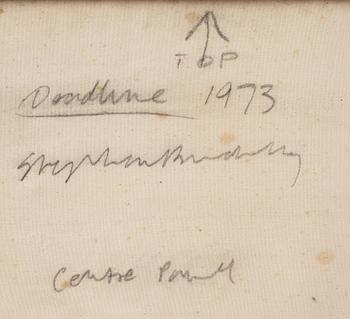 TOP
Deadline 1973
Stephen Buckley
Centre Panel